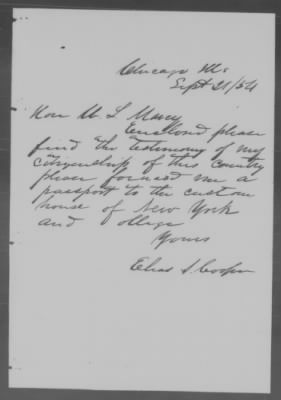 Chicago Ills
Sept 21/54
Hon W. L Marcy
Enclosed please
find the testimony of my
citizenship of this country
please forward me a
passport to the custom
house of New York
and oblige
Yours
Elias S. Cooper